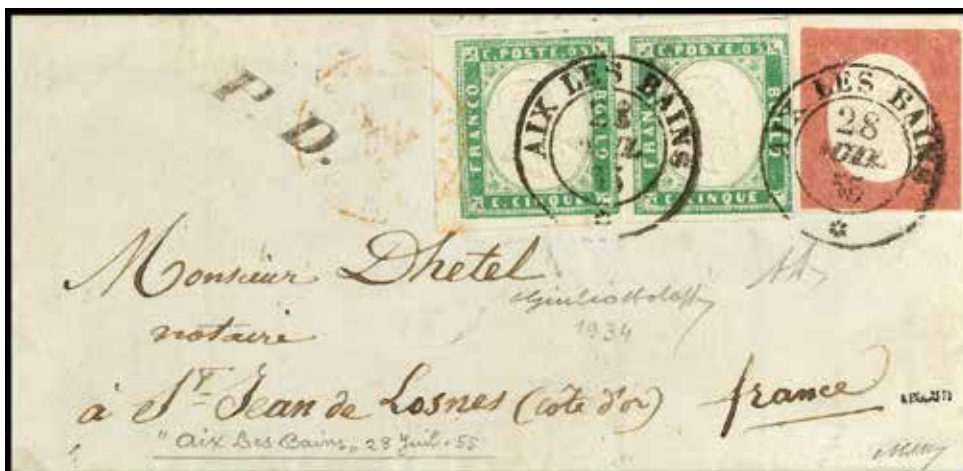 P. D.
C. POSTE. 05
FRANCO
BOLLO
C. CINQUE
C. POSTE. 05
FRANCO
BOLLO
C. CINQUE
AIX LES BAINS
28
AIX LES BAINS
28
Monsieur Dhetel
notaire
1934
à St Jean de Losnes (côte d'or) france
"Aix Les Bains" 28 Juil. 55